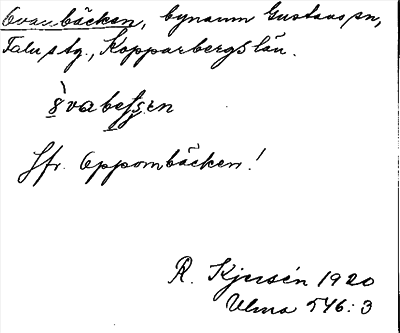 Ovanbäcken, bynamn Gustavs sn,
Falu tg., Kopparbergs län.
òvabeʃʃen
Jfr. Oppombäcken!
R. Kjersén 1920
Ulma 546:3